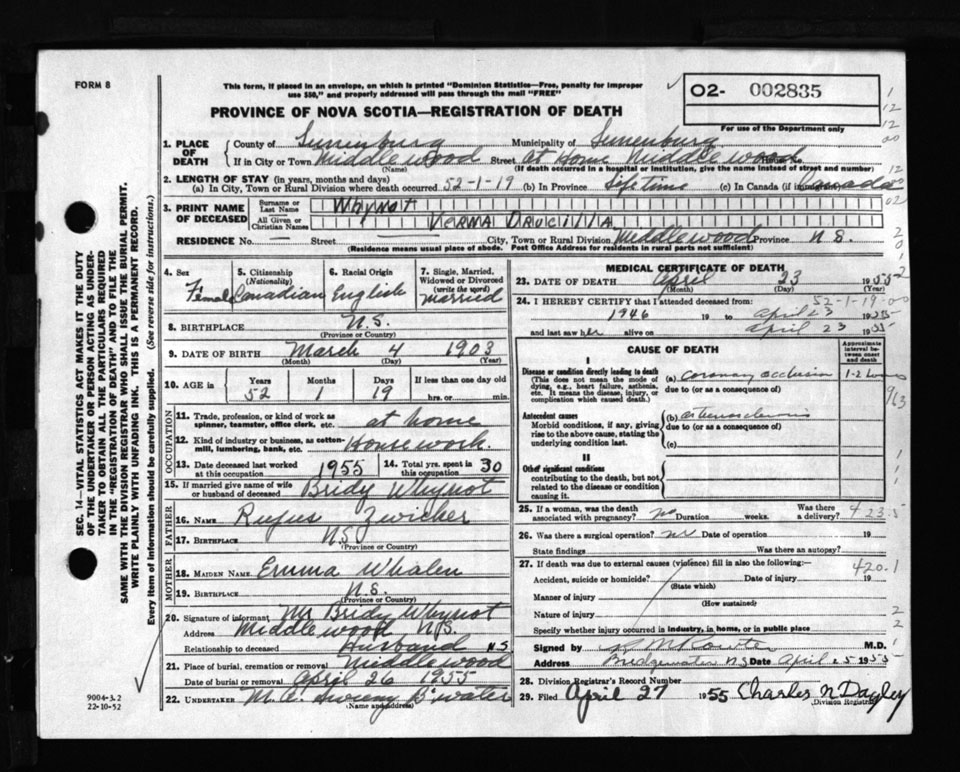 FORM 8
This form, if placed in an envelope, on which is printed "Dominion Statistics—Free, penalty for improper
use $50," and properly addressed will pass through the mail "FREE"
O2- 002835
PROVINCE OF NOVA SCOTIA—REGISTRATION OF DEATH
For use of the Department only
1. PLACE OF DEATH
County of Lunenburg Municipality of Lunenburg
If in City or Town Middlewood Street At Home Middlewood
(Name) (If death occurred in a hospital or institution, give the name instead of street and number)
2. LENGTH OF STAY (in years, months and days)
(a) In City, Town or Rural Division where death occurred 52-1-19 (b) In Province Lifetime (c) In Canada (if immigrant) Canada
3. PRINT NAME OF DECEASED
Surname or Last Name Whynot
All Given or Christian Names Verma Drucilla
RESIDENCE No. — Street — City, Town or Rural Division Middlewood Province N S.
(Residence means usual place of abode. Post Office Address for residents in rural parts not sufficient)
4. Sex Female
5. Citizenship (Nationality) Canadian
6. Racial Origin English
7. Single, Married, Widowed or Divorced (write the word) Married
8. BIRTHPLACE N.S.
(Province or Country)
9. DATE OF BIRTH March 4 1903
(Month) (Day) (Year)
10. AGE in Years 52 Months 1 Days 19 If less than one day old
hrs. or min.
OCCUPATION
11. Trade, profession, or kind of work as spinner, teamster, office clerk, etc. at home
12. Kind of industry or business, as cotton-mill, lumbering, bank, etc. Housework.
13. Date deceased last worked at this occupation 1955 14. Total yrs. spent in 30
15. If married give name of wife or husband of deceased Bridy Whynot
FATHER
16. NAME Rufus Zwicker
17. BIRTHPLACE N S
(Province or Country)
MOTHER
18. MAIDEN NAME Emma Whalen
19. BIRTHPLACE N.S.
(Province or Country)
20. Signature of informant Mr Bridy Whynot
Address Middlewood N.S.
Relationship to deceased Husband N S
21. Place of burial, cremation or removal Middlewood
Date of burial or removal April 26 1955
22. UNDERTAKER M. A. Sweeny B'water
(Name and address)
MEDICAL CERTIFICATE OF DEATH
23. DATE OF DEATH April 23 1955
(Month) (Day) (Year)
52-1-19-00
24. I HEREBY CERTIFY that I attended deceased from:
1946 19 to April 23 1955
and last saw her alive on April 23 1955
CAUSE OF DEATH
Approximate interval between onset and death
I
Disease or condition directly leading to death (a) coronary occlusion
(This does not mean the mode of dying, e.g., heart failure, asthenia, etc. It means the disease, injury, or complication which caused death.) due to (or as a consequence of)
Antecedent causes (b) arteriosclerosis
Morbid conditions, if any, giving rise to the above cause, stating the underlying condition last. due to (or as a consequence of)
(c)
II
Other significant conditions
contributing to the death, but not related to the disease or condition causing it.
25. If a woman, was the death associated with pregnancy? no Duration weeks. Was there a delivery? 423.5
26. Was there a surgical operation? no Date of operation 19
State findings Was there an autopsy?
27. If death was due to external causes (violence) fill in also the following:— 420.1
Accident, suicide or homicide? Date of injury 19
(State which)
Manner of injury
(How sustained)
Nature of injury
Specify whether injury occurred in industry, in home, or in public place
Signed by M.D.
Address Bridgewater N S Date April 25 1955
28. Division Registrar's Record Number
29. Filed April 27 1955 Charles N Dagley
(Division Registrar)
SEC. 14—VITAL STATISTICS ACT MAKES IT THE DUTY
OF THE UNDERTAKER OR PERSON ACTING AS UNDER-
TAKER TO OBTAIN ALL THE PARTICULARS REQUIRED
IN THE "REGISTRATION OF DEATH" AND TO FILE THE
SAME WITH THE DIVISION REGISTRAR WHO SHALL ISSUE THE BURIAL PERMIT.
WRITE PLAINLY WITH UNFADING INK. THIS IS A PERMANENT RECORD.
Every item of information should be carefully supplied. (See reverse side for instructions.)
9004-3.2
22-10-52